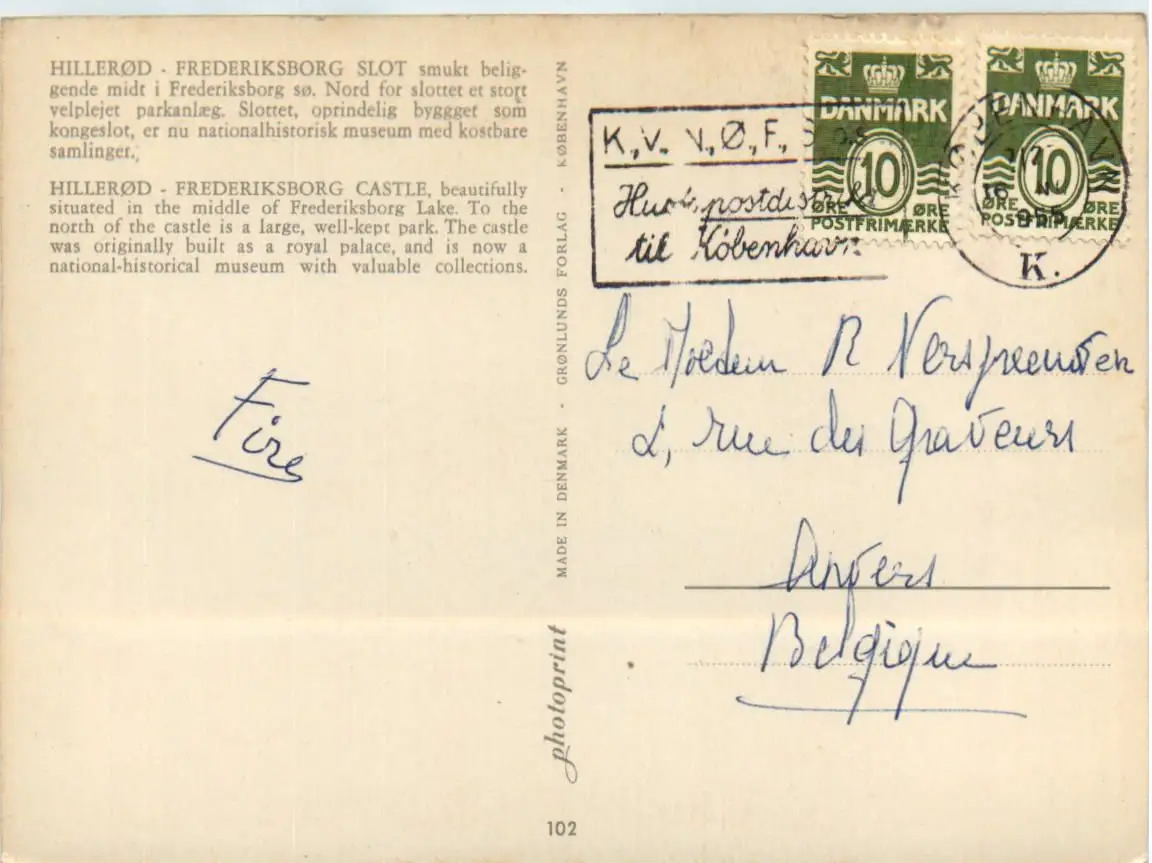 HILLERØD - FREDERIKSBORG SLOT smukt belig-
gende midt i Frederiksborg sø. Nord for slottet et stort
velplejet parkanlæg. Slottet, oprindelig byggget som
kongeslot, er nu nationalhistorisk museum med kostbare
samlinger.
HILLERØD - FREDERIKSBORG CASTLE, beautifully
situated in the middle of Frederiksborg Lake. To the
north of the castle is a large, well-kept park. The castle
was originally built as a royal palace, and is now a
national-historical museum with valuable collections.
MADE IN DENMARK - GRØNLUNDS FORLAG - KØBENHAVN
photoprint
102
DANMARK
10
ØRE ØRE
POSTFRIMÆRKE
DANMARK
10
ØRE ØRE
POSTFRIMÆRKE
KØBENHAVN
K.
K., V., N., Ø., F.,
Husk postdistrikt
til København
Le R
2, rue des Graveurs
Anvers
Belgique